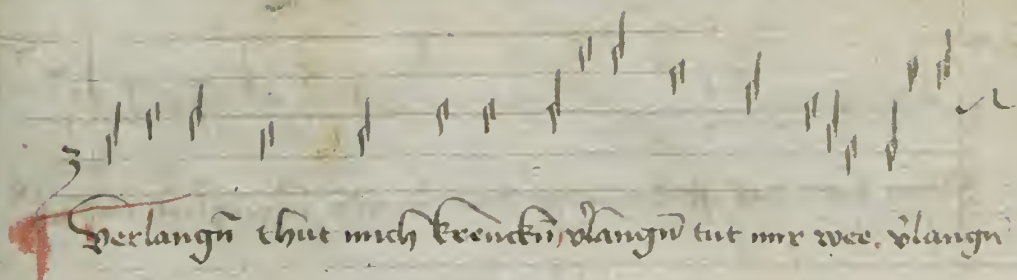 Verlangn̄ thut mich krenckn̄, v̓langn̄ tut mir wee. v̓langn̄